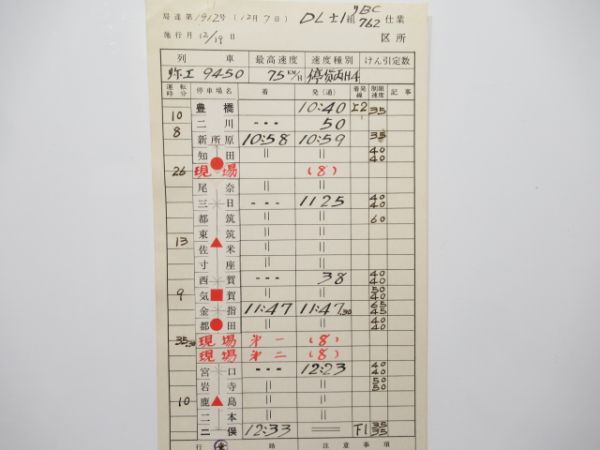 局達第1912号(12月7日) DL士1組 仕業
762
施行月12/19日 区所
列車 最高速度 速度種別 けん引定数
9450 75KM/H 停貨丙H4
運転時分 停車場名 着 発(通) 着発線 制限速度 記事
豊橋 10:40 上2 35
10
二川 --- 50
8
新所原 10:58 10:59 35
知田 || || 40 40
26 現場 (8)
尾奈 || ||
三日 --- 11 25 40 40
都筑 || || 60
東筑 || ||
13
佐米 || ||
寸座 || ||
西賀 --- 38 40 40
9 気賀 || || 50 40
金指 11:47 11:47.30 65 45
都田 || || 40 40
35.30 現場 第一 (8)
現場 第二 (8)
宮口 --- 12:23 40 40
岩寺 || || 50 50
10 鹿島 || ||
二本 || ||
二俣 12:33 == 下1 35 35
行路 注意事項